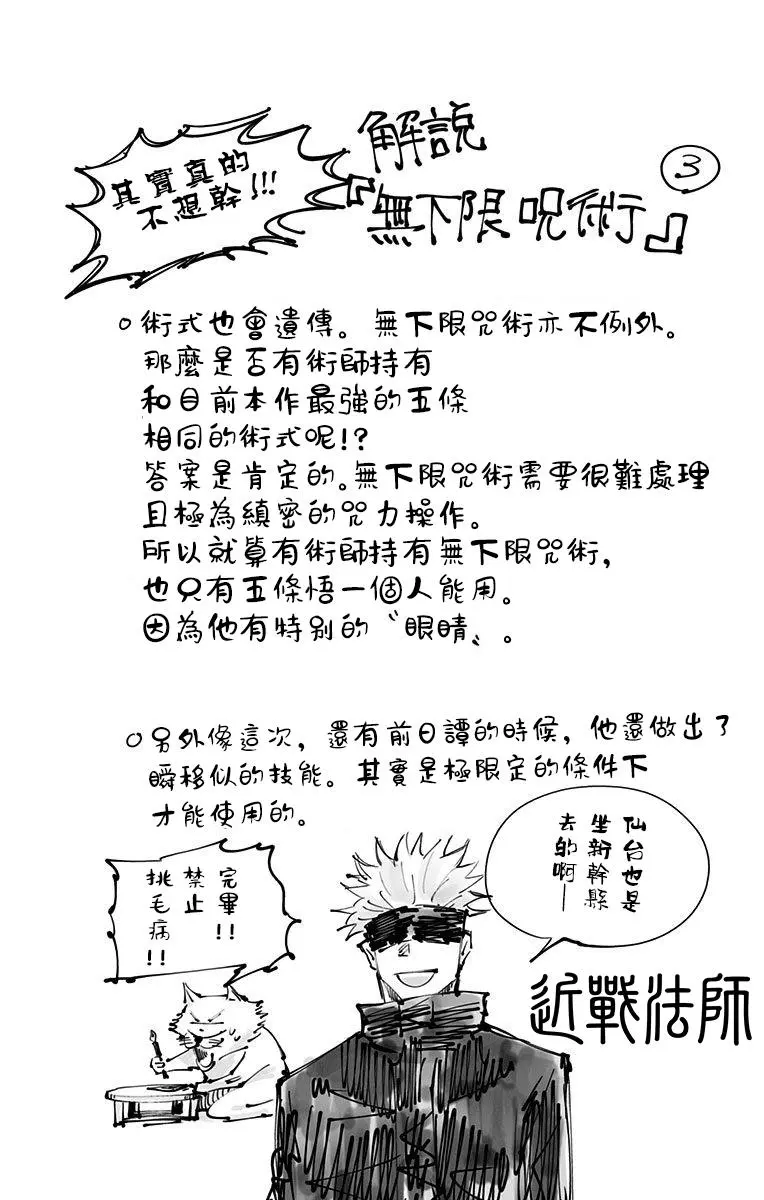 其實真的
不想幹!!!
解說
③
『無下限呪術』
○術式也會遺傳。無下限咒術亦不例外。
那麼是否有術師持有
和目前本作最強的五條
相同的術式呢!?
答案是肯定的。無下限咒術需要很難處理
且極為縝密的咒力操作。
所以就算有術師持有無下限咒術,
也只有五條悟一個人能用。
因為他有特別的〝眼睛〟。
○另外像這次,還有前日譚的時候,他還做出了
瞬移似的技能。其實是極限定的條件下
才能使用的。
仙台也是
坐新幹縣
去的啊—
完畢!!
禁止
挑毛病!!
近戰法師